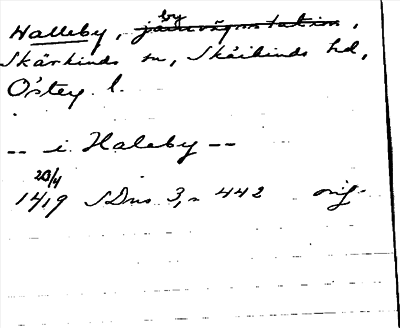 Halleby, by järnvägsstation,
Skärkinds sn, Skärkinds hd,
Östey. l.
-- i Haleby --
20/4
1419 SDns 3, 442 orig.